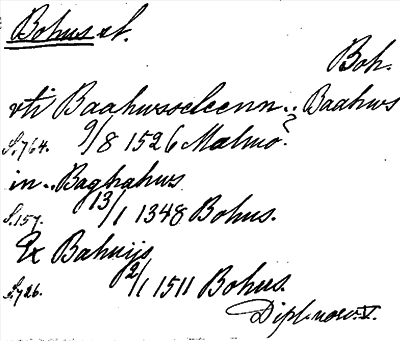 Bohus sl.
Boh.
vti Baahusseleenn.. Baahus
S. 764. 9/8 1526 Malmø?
in.. Baghahus
S. 157. 13/1 1348 Bohus.
Ex Bahuijs
S. 726. 2/1 1511 Bohus.
Dipl. norv. V.